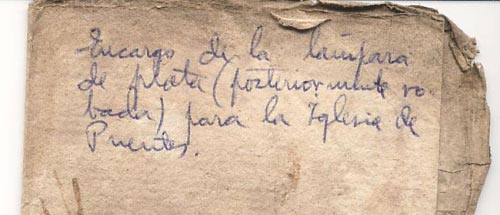 Encargo de la lámpara
de plata (posteriormente ro-
bada) para la Iglesia de
Puentes.